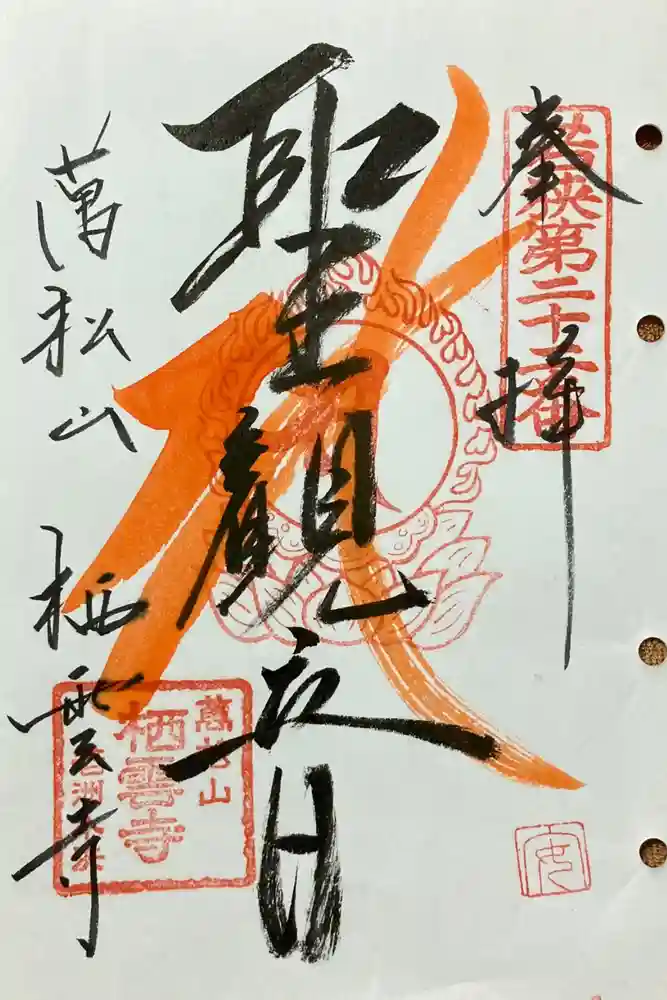 奉拝
若狭第二十 番
聖觀音
萬松山
栖雲寺
萬松山
栖雲寺